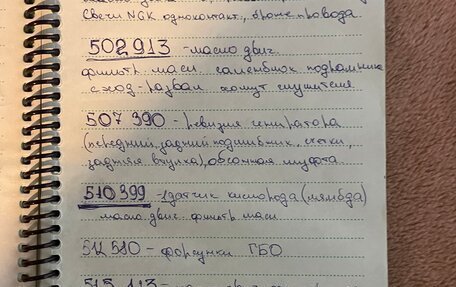 Свечи NGK одноконтакт., броне провода
502 913 - масло двиг.
фильтр масл сайлентблок подрамника
сход-развал хомут глушителя.
507 390 - ревизия генератора
(передний, задний подшибник, щетки,
задняя втулка), обгонная муфта.
510 399 - 1 датчик кислорода (лямбда)
масло двиг. фильтр масл.
512 510 - форсунки ГБО